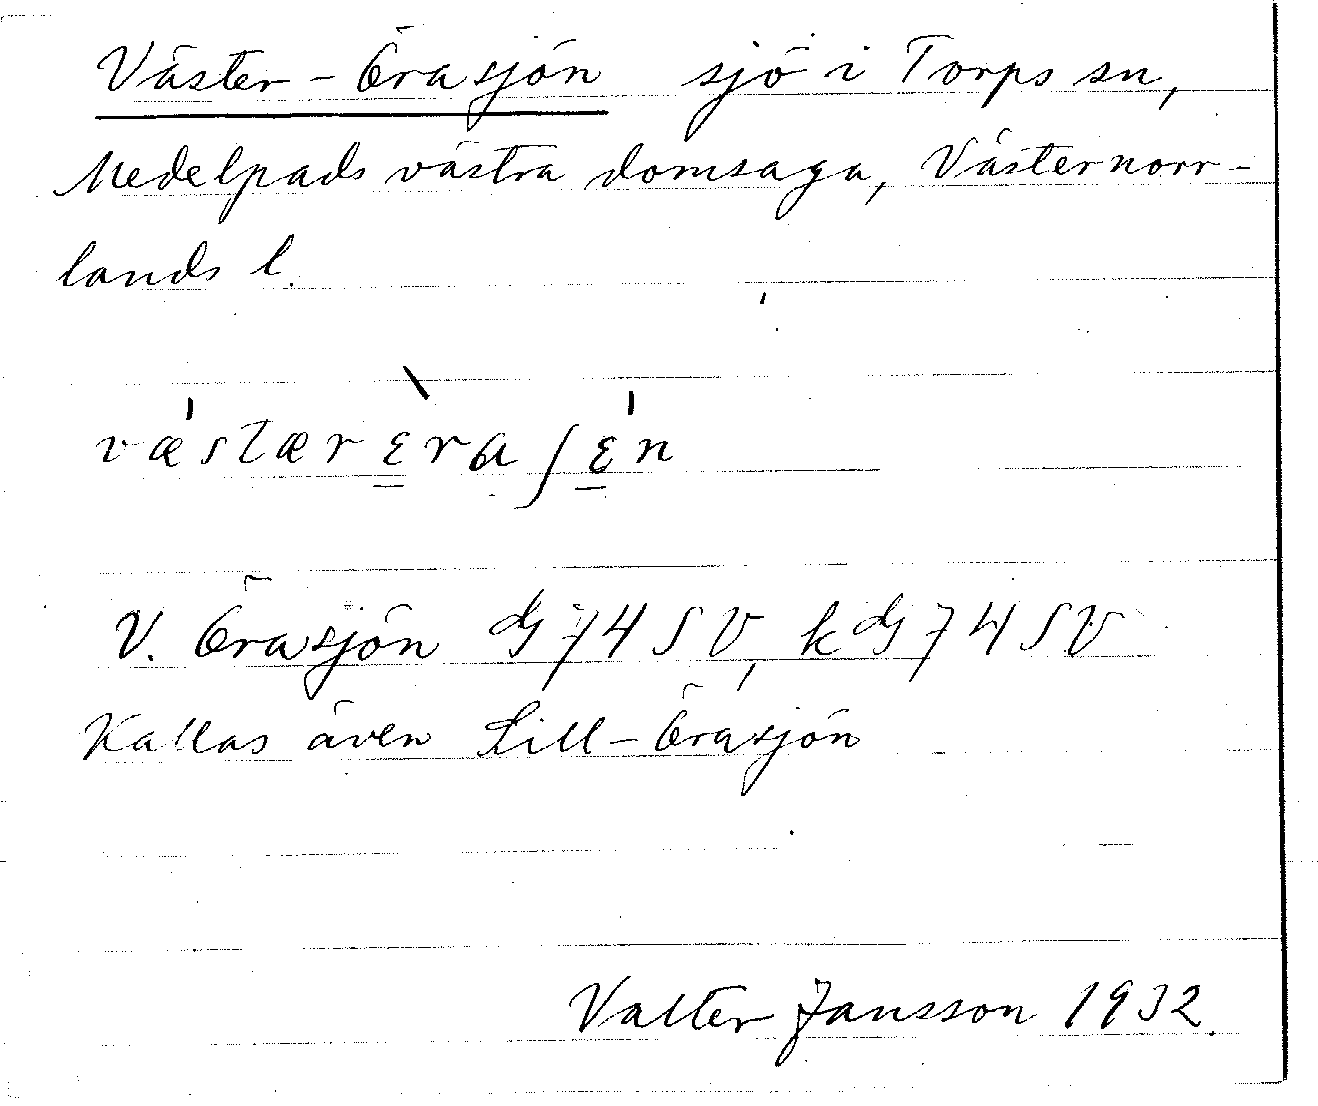 Väster-Örasjön sjö i Torps sn,
Medelpads västra domsaga, Västernorr-
lands l.
væ̍stær ɛ̀ra ʃɛ̍n
V. Örasjön G74SV, kG74SV
Kallas även Lill-Örasjön
Valter Jansson 1932.